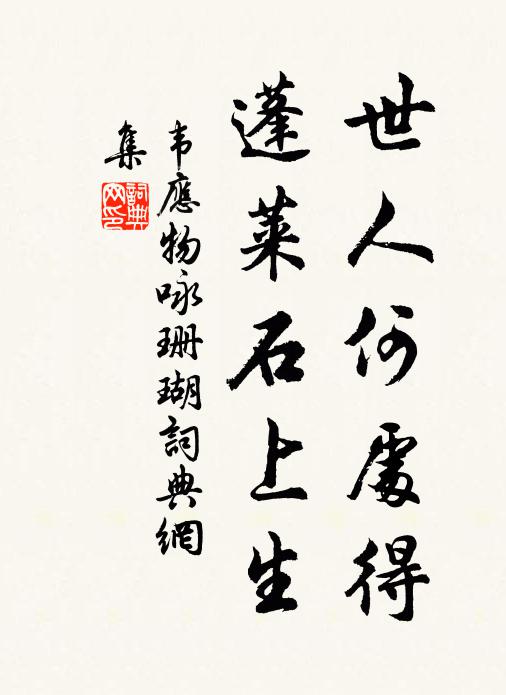 世人何處得
蓬萊石上生
韦應物咏珊瑚詞典網
集
詞典网印